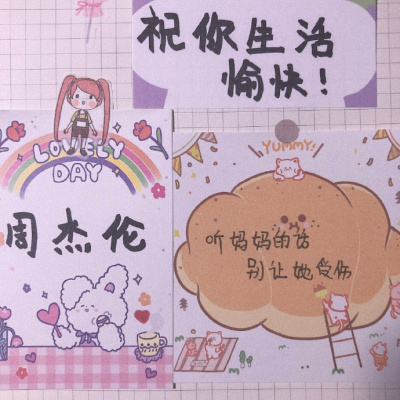 祝你生活
愉快！
LOVELY
DAY
周杰伦
YUMMY!
听妈妈的话
别让她受伤